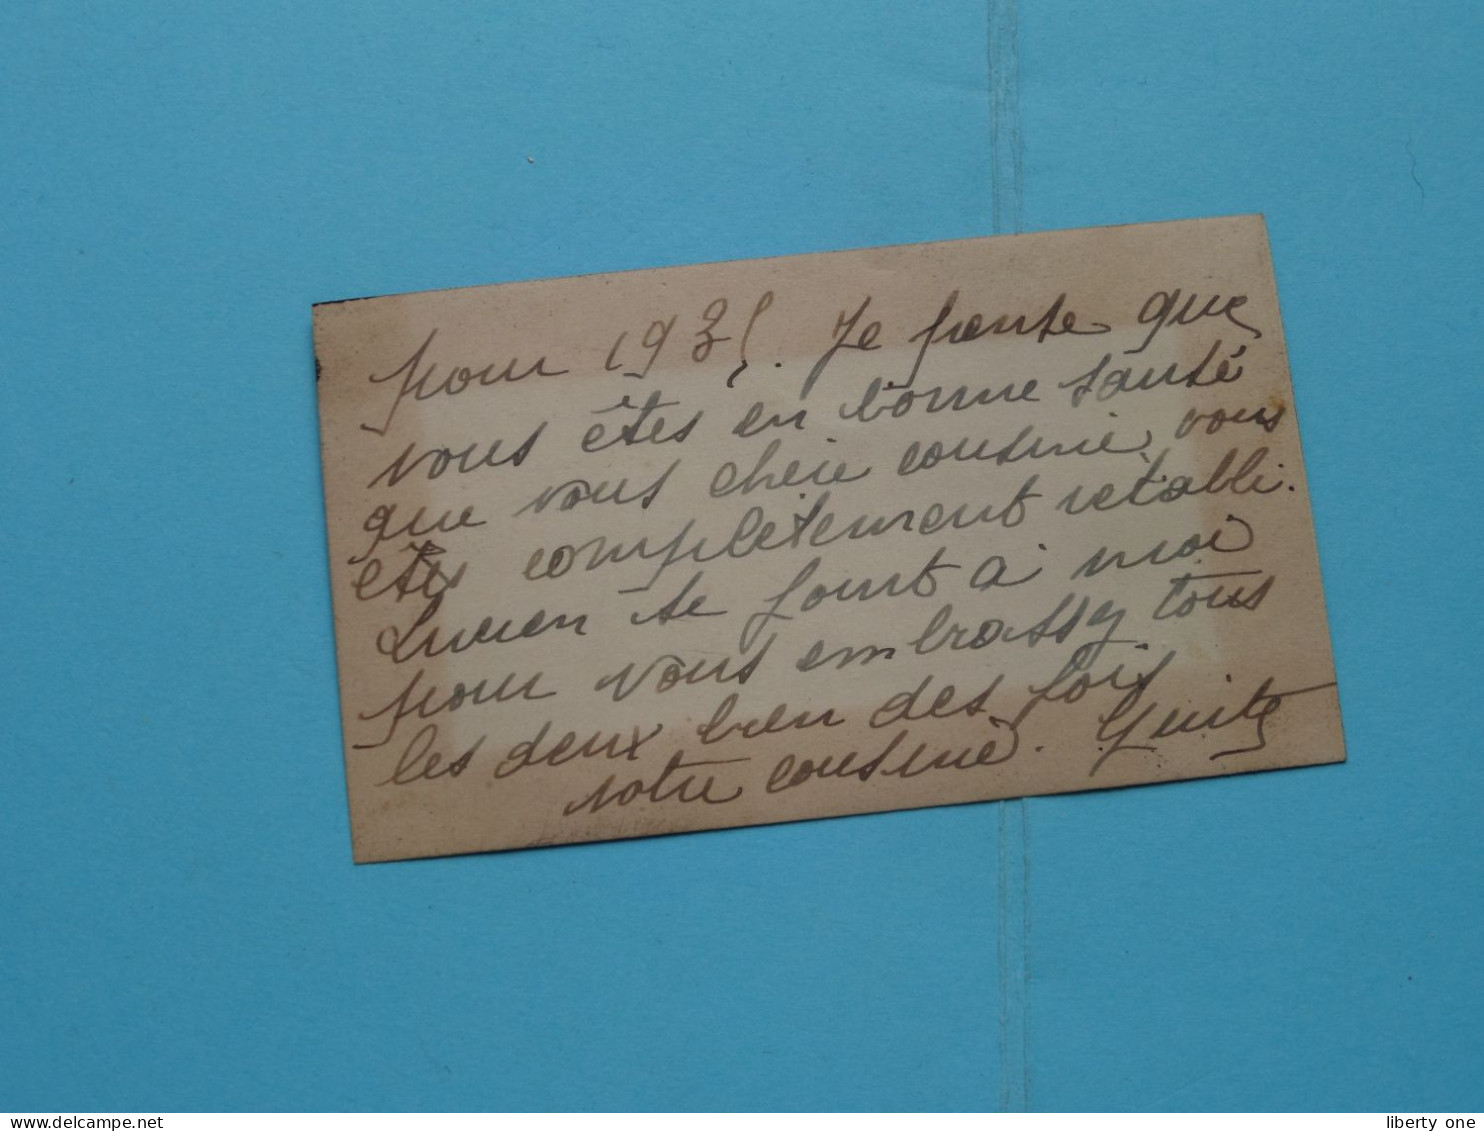 pour 1935. Je pense que
vous êtes en bonne santé
que vous cheie cousine, vous
êtes complètement retabli.
Lucien se joint à moi
pour vous embrassez tous
les deux bien des fois
votre cousine.
www.delcampe.net
liberty one